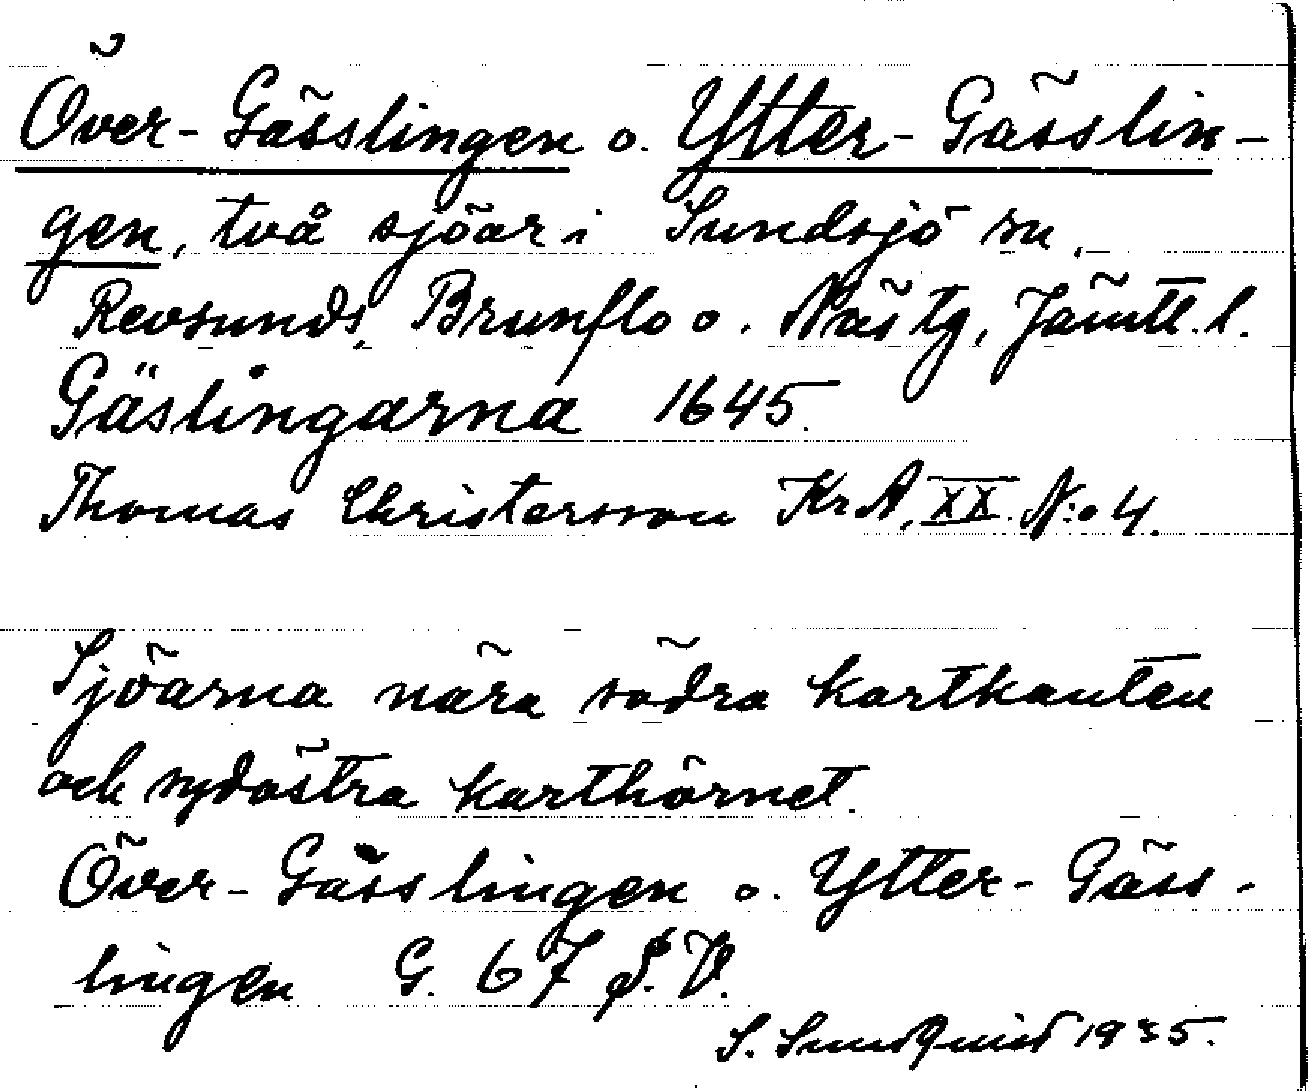 Över-Gässlingen o. Ytter-Gässlin-
gen, två sjöar i Sundsjö sn,
Revsunds, Brunflo o. Näs tg, Jämtl. l.
Gäslingarna 1645.
Thomas Christersson Kr. A. XX. N:o 4.
Sjöarna nära södra kartkanten
och sydöstra karthörnet.
Över-Gässlingen o. Ytter-Gäss-
lingen G. 67 S. V.
S. Sundquist 1935.